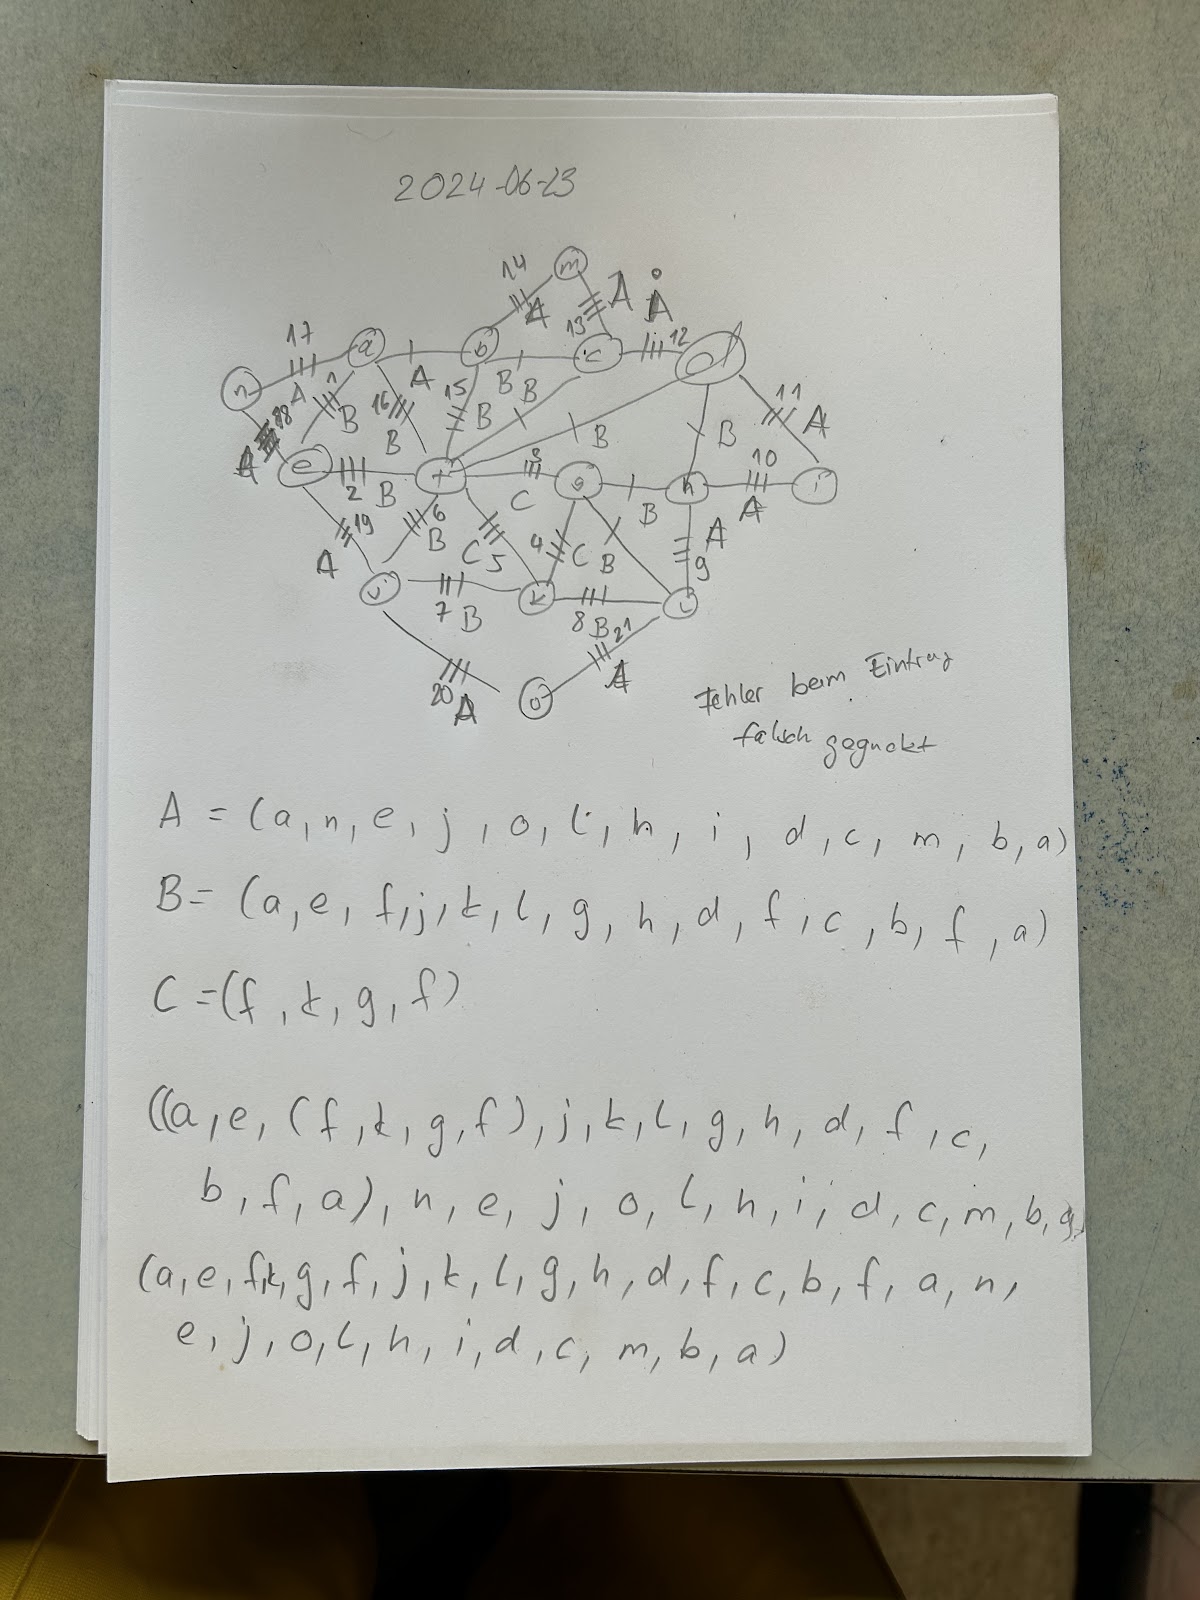 2024-06-23
14 m
A A Å
17 13 12
a b c d
n A A B B 11
18 1 16 15 B A
A B B B B 10
e f 3 g h i
2 B C B A
19 6 4 C B A
A B C 5 9
j k l
7 B 8 B 21
20 A o A
Fehler beim Eintrag
falsch geguckt
A = (a, n, e, j, o, l, h, i, d, c, m, b, a)
B = (a, e, f, j, k, l, g, h, d, f, c, b, f, a)
C = (f, k, g, f)
((a, e, (f, k, g, f), j, k, l, g, h, d, f, c,
b, f, a), n, e, j, o, l, h, i, d, c, m, b, a)
(a, e, f, k, g, f, j, k, l, g, h, d, f, c, b, f, a, n,
e, j, o, l, h, i, d, c, m, b, a)